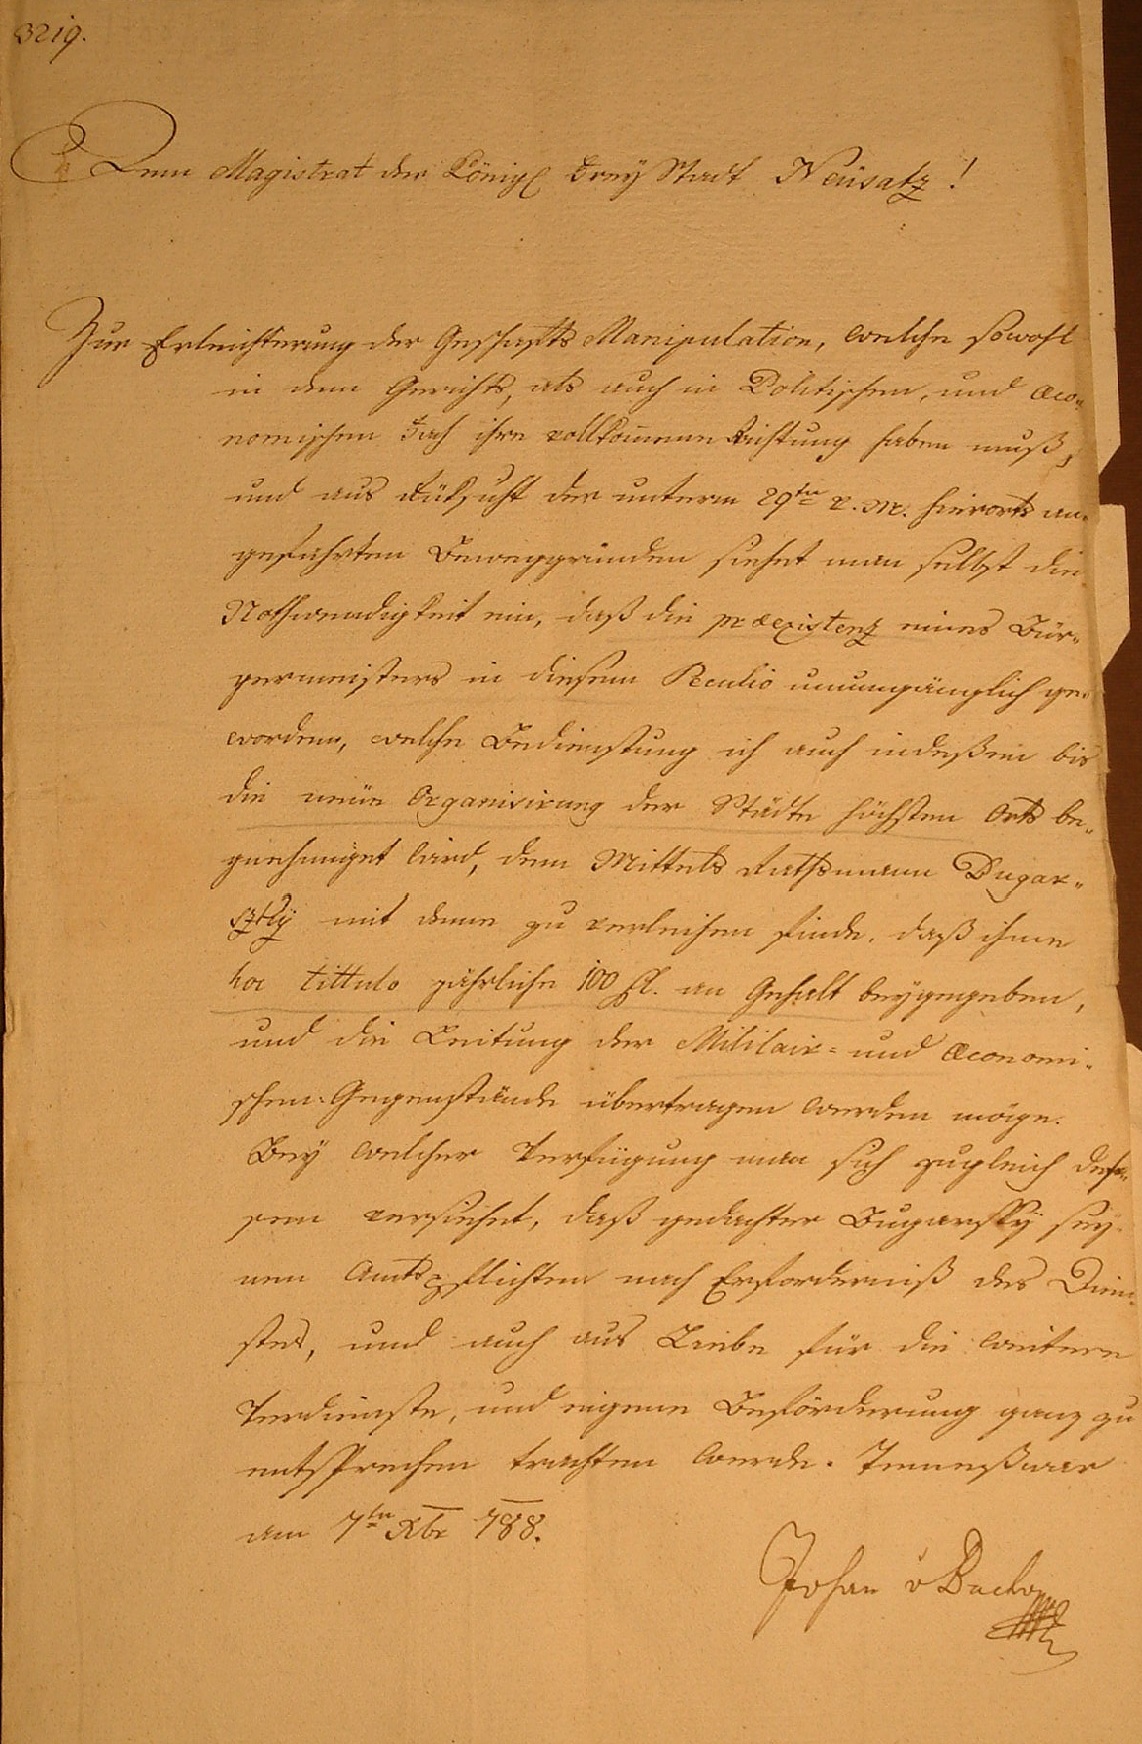 3219.
Dem Magistrat der Königl Frey Stadt Neusatz!
Zur Erleichterung der Geschäfts Manipulation, welche sowohl
in dem Gerichts, als auch in Politischen, und Œco-
nomischen Fach ihre vollkommene Richtung haben muß,
und aus Rüksicht der unterm 29ten v. M. hierorts an-
geführten Beweggründen siehet man selbst die
Nothwendigkeit ein, daß die præexistenz eines Bür-
germeisters in diesem unumgänglich ge-
worden, welche Bedienstung ich auch indeßen bis
die neüe Organisirung der Städte höchsten Orts be-
gnehmiget wird, dem Mittels Rathsmann Bugar-
szky mit deme zu verleihen finde, daß ihme
hoc tittulo jährliche 100 fl. an Gehalt beygegeben,
und die Leitung der Militair- und Œconomi-
schen Gegenstände übertragen werden möge.
Bey welcher Verfügung man sich zugleich
versiehet, daß gedachter Bugarsky sey-
nen Amtspflichten nach Erforderniß des Dien-
stes, und auch aus Liebe für die weitere
Verdienste, und eigene Beförderung ganz zu
entsprechen trachten werde. Temeswar
am 7ten Xbr 788.
Johan v